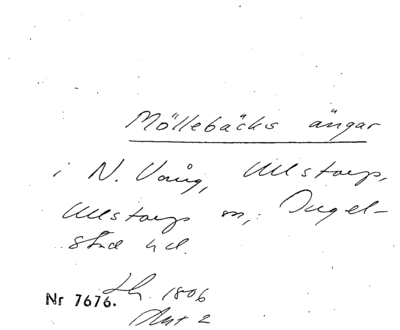 Möllebäcks ängar
i N. Vång, Ullstorp,
Ullstorps sn, Ingel-
stad hd.
Lh. 1806
Nr 7676.
Akt 2